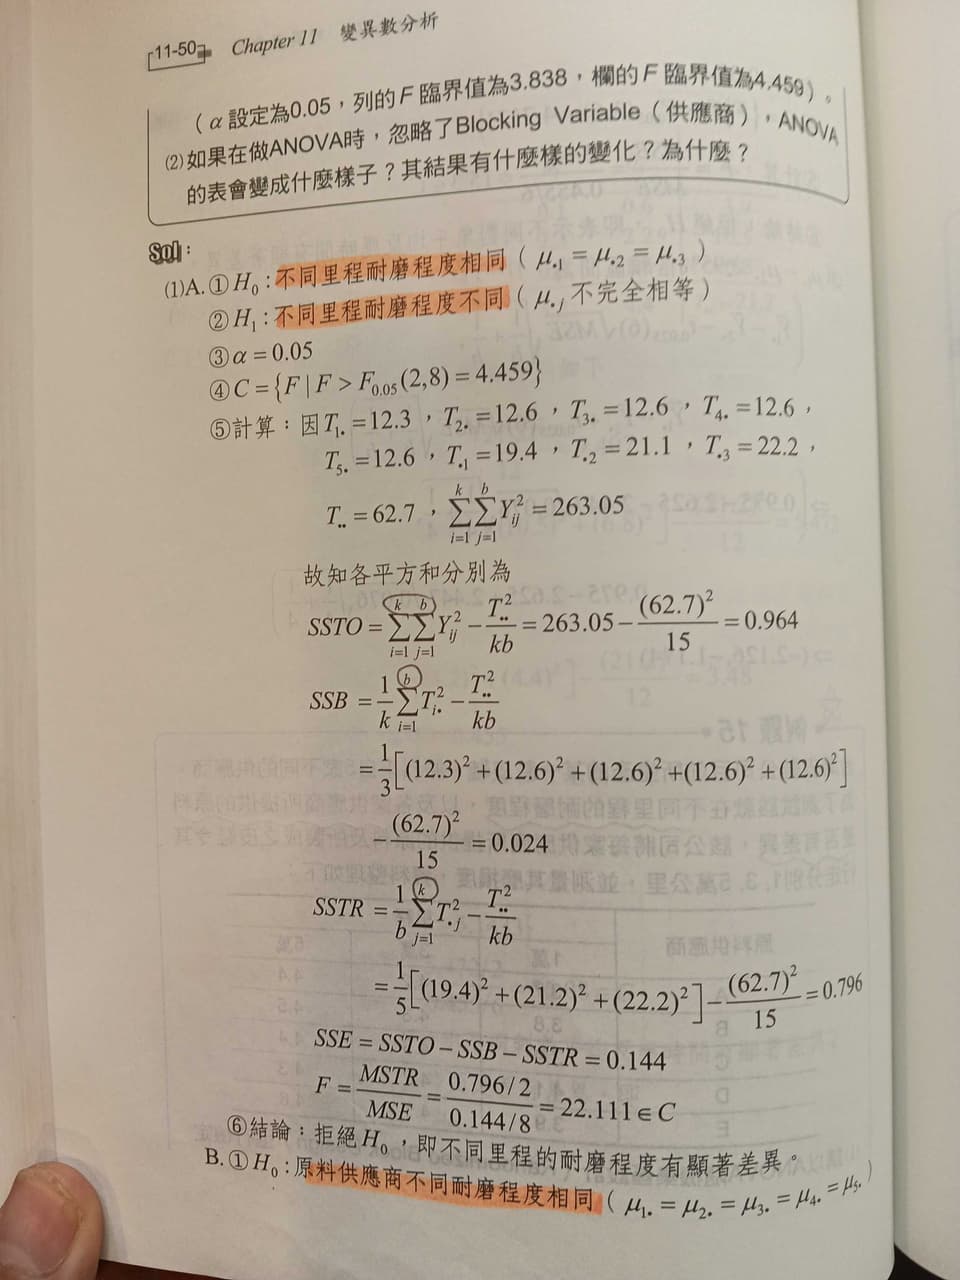 11-50 Chapter 11 變異數分析
（α設定為0.05，列的F臨界值為3.838，欄的F臨界值為4.459）。
⑵如果在做ANOVA時，忽略了Blocking Variable（供應商），ANOVA
的表會變成什麼樣子？其結果有什麼樣的變化？為什麼？
Sol：
(1)A.①H₀：不同里程耐磨程度相同（μ.₁ = μ.₂ = μ.₃）
②H₁：不同里程耐磨程度不同（μ.ⱼ不完全相等）
③α = 0.05
④C = {F | F > F₀.₀₅(2,8) = 4.459}
⑤計算：因T₁. = 12.3，T₂. = 12.6，T₃. = 12.6，T₄. = 12.6，
T₅. = 12.6，T.₁ = 19.4，T.₂ = 21.1，T.₃ = 22.2，
T.. = 62.7，∑(i=1→k)∑(j=1→b)Yᵢⱼ² = 263.05
故知各平方和分別為
SSTO = ∑(i=1→k)∑(j=1→b)Yᵢⱼ² − T..²/kb = 263.05 − (62.7)²/15 = 0.964
SSB = 1/k ∑(i=1→b)Tᵢ.² − T..²/kb
= 1/3[(12.3)² + (12.6)² + (12.6)² + (12.6)² + (12.6)²]
− (62.7)²/15 = 0.024
SSTR = 1/b ∑(j=1→k)T.ⱼ² − T..²/kb
= 1/5[(19.4)² + (21.2)² + (22.2)²] − (62.7)²/15 = 0.796
SSE = SSTO − SSB − SSTR = 0.144
F = MSTR/MSE = (0.796/2)/(0.144/8) = 22.111 ∈ C
⑥結論：拒絕H₀，即不同里程的耐磨程度有顯著差異。
B.①H₀：原料供應商不同耐磨程度相同（μ₁. = μ₂. = μ₃. = μ₄. = μ₅.）